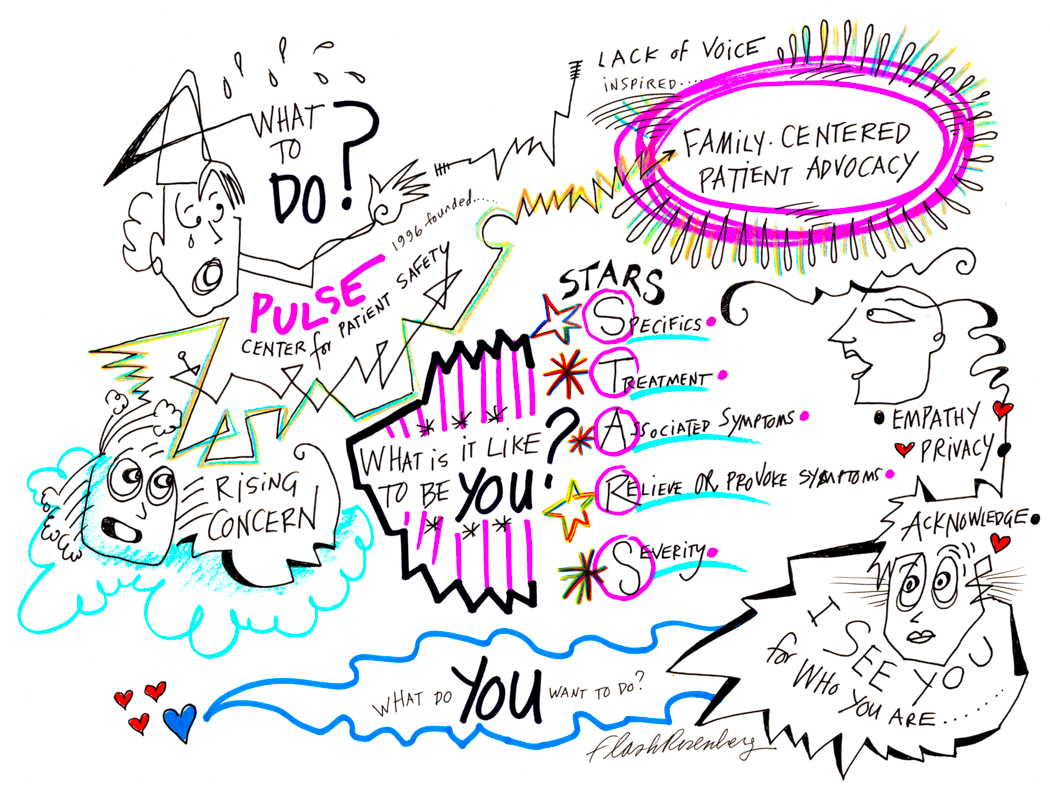 WHAT
TO
DO?
LACK of VOICE
INSPIRED.....
FAMILY-CENTERED
PATIENT ADVOCACY
1996 founded.....
PULSE
CENTER for PATIENT SAFETY
RISING
CONCERN
WHAT IS IT LIKE
TO BE YOU?
STARS
SPECIFICS
TREATMENT
ASSOCIATED SYMPTOMS
RELIEVE OR PROVOKE SYMPTOMS
SEVERITY
EMPATHY
PRIVACY
ACKNOWLEDGE
I SEE YOU
for WHO YOU ARE......
WHAT DO YOU WANT TO DO?
Flash Rosenberg